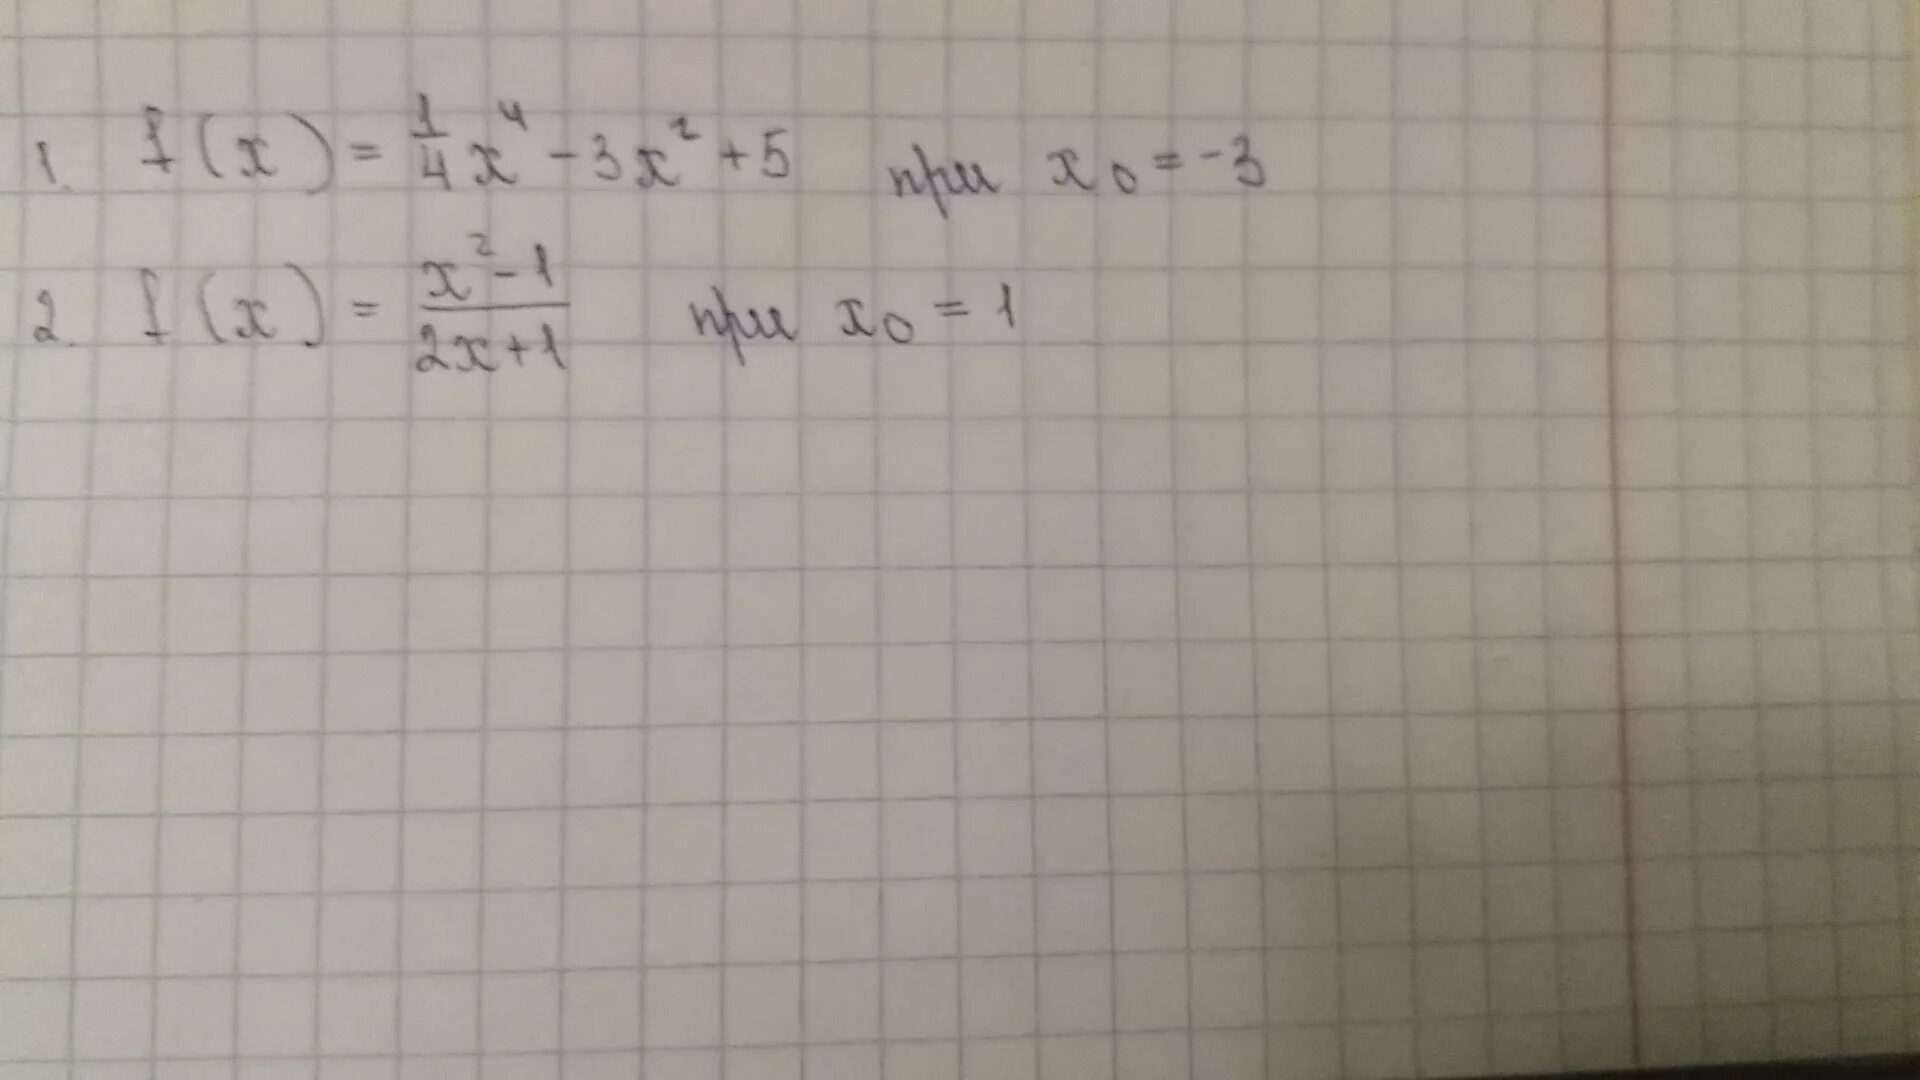 1. f(x) = 1/4 x⁴ - 3x² + 5 при x₀ = -3
2. f(x) = (x² - 1)/(2x + 1) при x₀ = 1